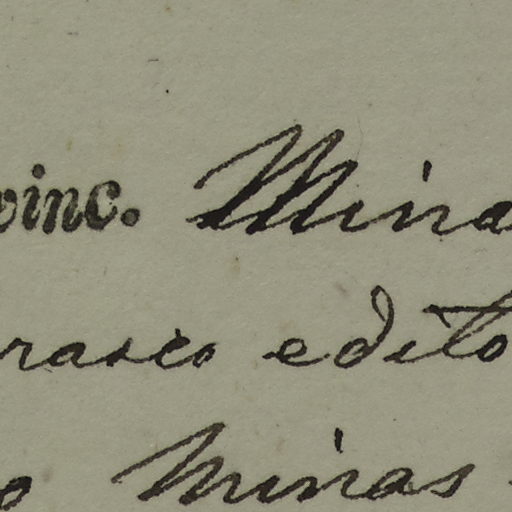 vinc. Minas
rasco edito
o Minas